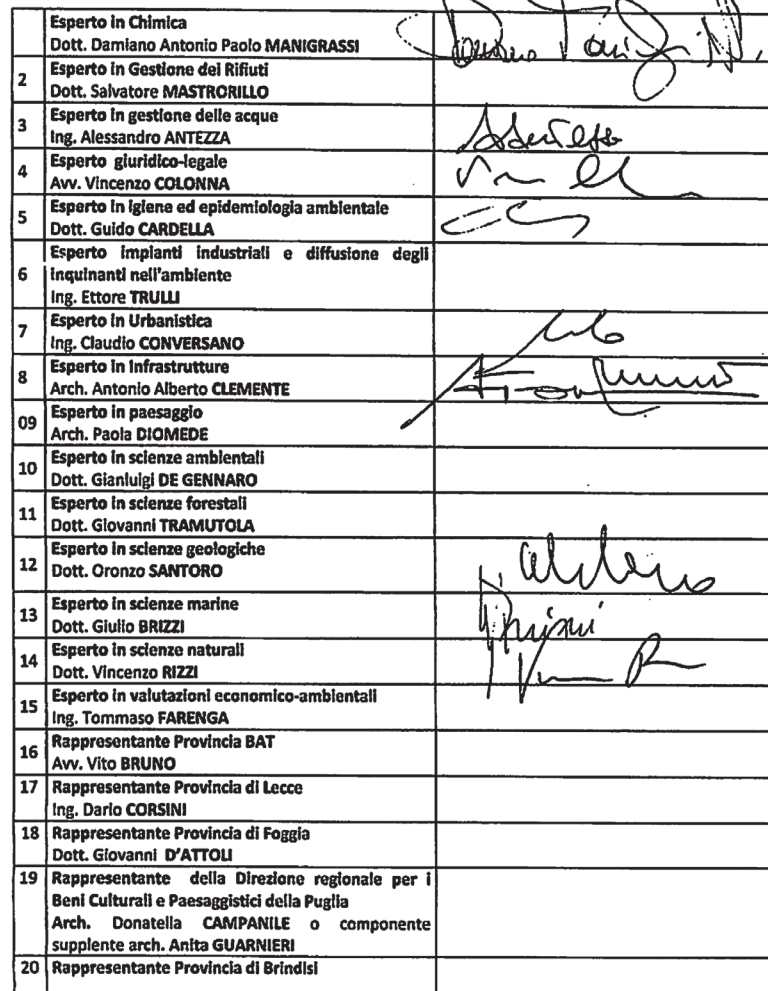 Esperto in Chimica
Dott. Damiano Antonio Paolo MANIGRASSI
2 Esperto in Gestione dei Rifiuti
Dott. Salvatore MASTRORILLO
3 Esperto in gestione delle acque
Ing. Alessandro ANTEZZA
4 Esperto giuridico-legale
Avv. Vincenzo COLONNA
5 Esperto in igiene ed epidemiologia ambientale
Dott. Guido CARDELLA
6 Esperto impianti industriali e diffusione degli
inquinanti nell'ambiente
Ing. Ettore TRULLI
7 Esperto in Urbanistica
Ing. Claudio CONVERSANO
8 Esperto in Infrastrutture
Arch. Antonio Alberto CLEMENTE
09 Esperto in paesaggio
Arch. Paola DIOMEDE
10 Esperto in scienze ambientali
Dott. Gianluigi DE GENNARO
11 Esperto in scienze forestali
Dott. Giovanni TRAMUTOLA
12 Esperto in scienze geologiche
Dott. Oronzo SANTORO
13 Esperto in scienze marine
Dott. Giulio BRIZZI
14 Esperto in scienze naturali
Dott. Vincenzo RIZZI
15 Esperto in valutazioni economico-ambientali
Ing. Tommaso FARENGA
16 Rappresentante Provincia BAT
Avv. Vito BRUNO
17 Rappresentante Provincia di Lecce
Ing. Dario CORSINI
18 Rappresentante Provincia di Foggia
Dott. Giovanni D'ATTOLI
19 Rappresentante della Direzione regionale per i
Beni Culturali e Paesaggistici della Puglia
Arch. Donatella CAMPANILE o componente
supplente arch. Anita GUARNIERI
20 Rappresentante Provincia di Brindisi